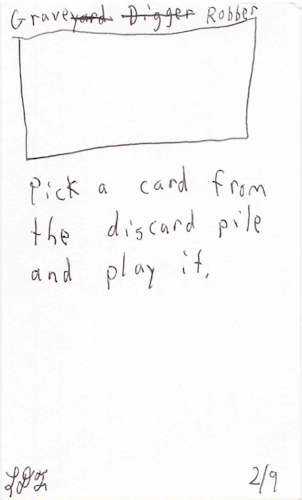 Graveyard Digger Robber
Pick a card from
the discard pile
and play it.
2/9